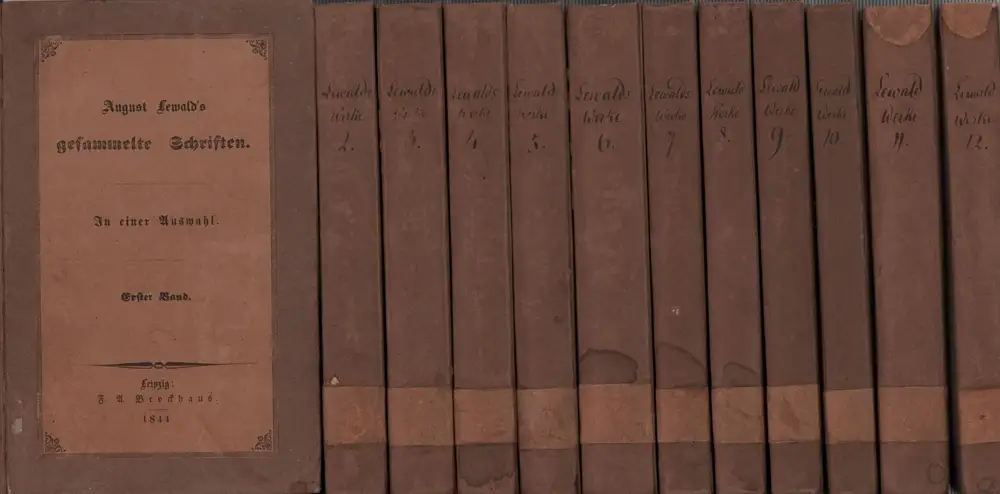 August Lewald's
gesammelte Schriften.
In einer Auswahl.
Erster Band.
Leipzig:
F. A. Brockhaus.
1844
Lewalds
Werke
2.
Lewalds
Werke
3.
Lewalds
Werke
4
Lewalds
Werke
5.
Lewalds
Werke
6.
Lewalds
Werke
7
Lewald
Werke
8.
Lewald
Werke
9.
Lewald
Werke
10.
Lewald
Werke
11.
Lewald
Werke
12.